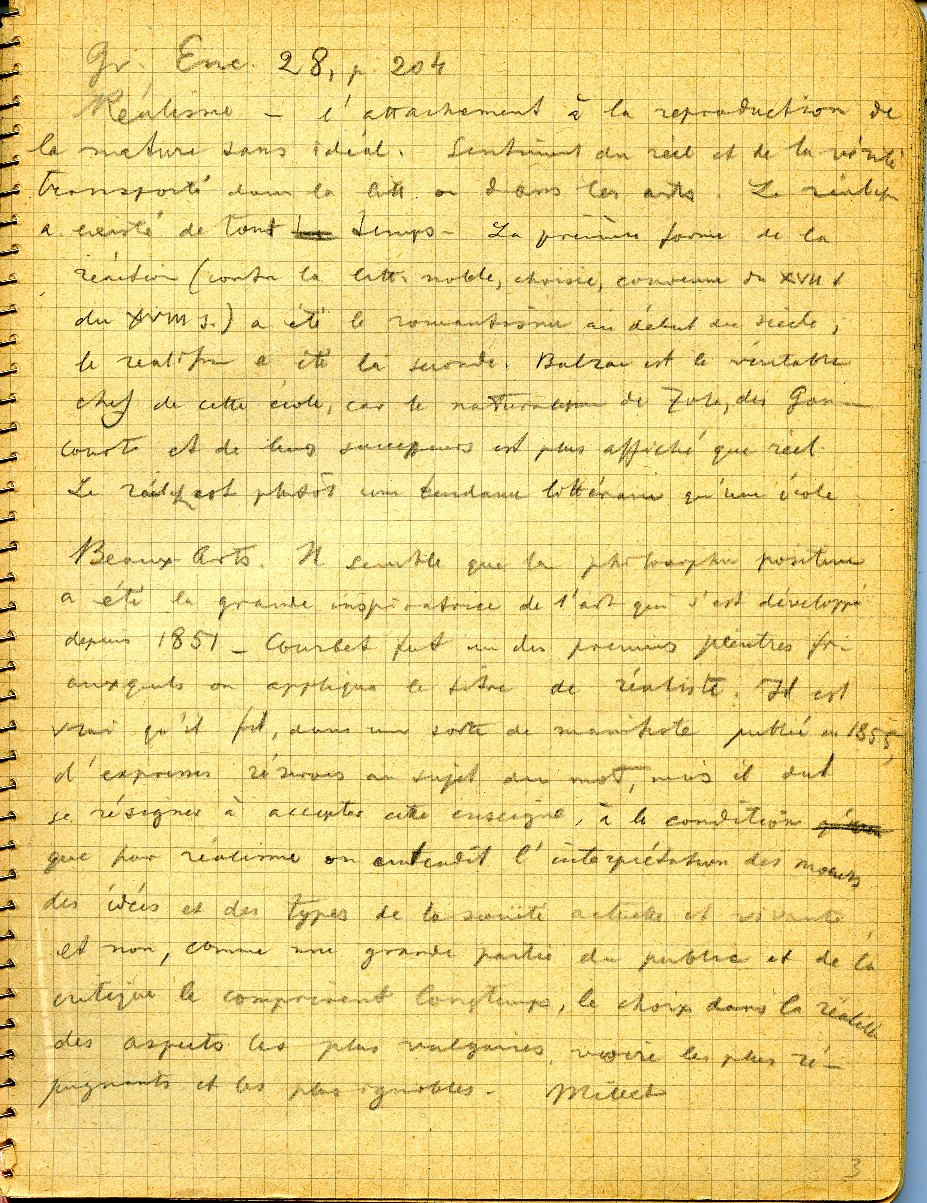 Gr. Enc. 28, p 204
Réalisme – l'attachement à la reproduction de
la nature sans idéal. Sentiment du réel et de la vérité
transporté dans la litt ou dans les arts. Le réalisme
a existé de tout temps – La première forme de la
réaction (contre la litt. noble, choisie, convenue du XVII et
du XVIII s.) a été le romantisme au début du siècle,
le realisme a été la seconde. Balzac est le véritable
chef de cette école, car le naturalisme de Zola, des Gon-
court et de leurs successeurs est plus affiché que réel
Le réalisme est plutôt une tendance littéraire qu'une école
Beaux-Arts. Il semble que la philosophie positive
a été la grande inspiratrice de l'art qui s'est développé
depuis 1851 – Courbet fut un des premiers peintres fr.
auxquels on appliqua le titre de réaliste. Il est
vrai qu'il fit, dans une sorte de manifeste publié en 1855,
d'expresses réserves au sujet du mot, mais il dut
se résigner à accepter cette enseigne, à la condition
que par réalisme on entendît l'interprétation des moeurs
des idées et des types de la société actuelle et vivante
et non, comme une grande partie du public et de la
critique le comprirent longtemps, le choix dans la réalité
des aspects les plus vulgaires, voire les plus ré-
pugnants et les plus ignobles – Millet
3